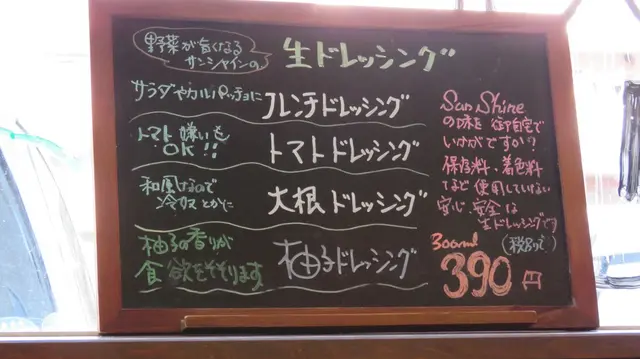 野菜が旨くなる
サンシャインの
生ドレッシング
サラダやカルパッチョに
フレンチドレッシング
トマト嫌いも
OK!!
トマトドレッシング
和風なので
冷奴とかに
大根ドレッシング
柚子の香りが
食欲をそそります
柚子ドレッシング
Sun Shine
の味を御自宅で
いかがですか?
保存料、着色料
など使用していない
安心、安全な
生ドレッシングです
300ml
(税別って)
390円